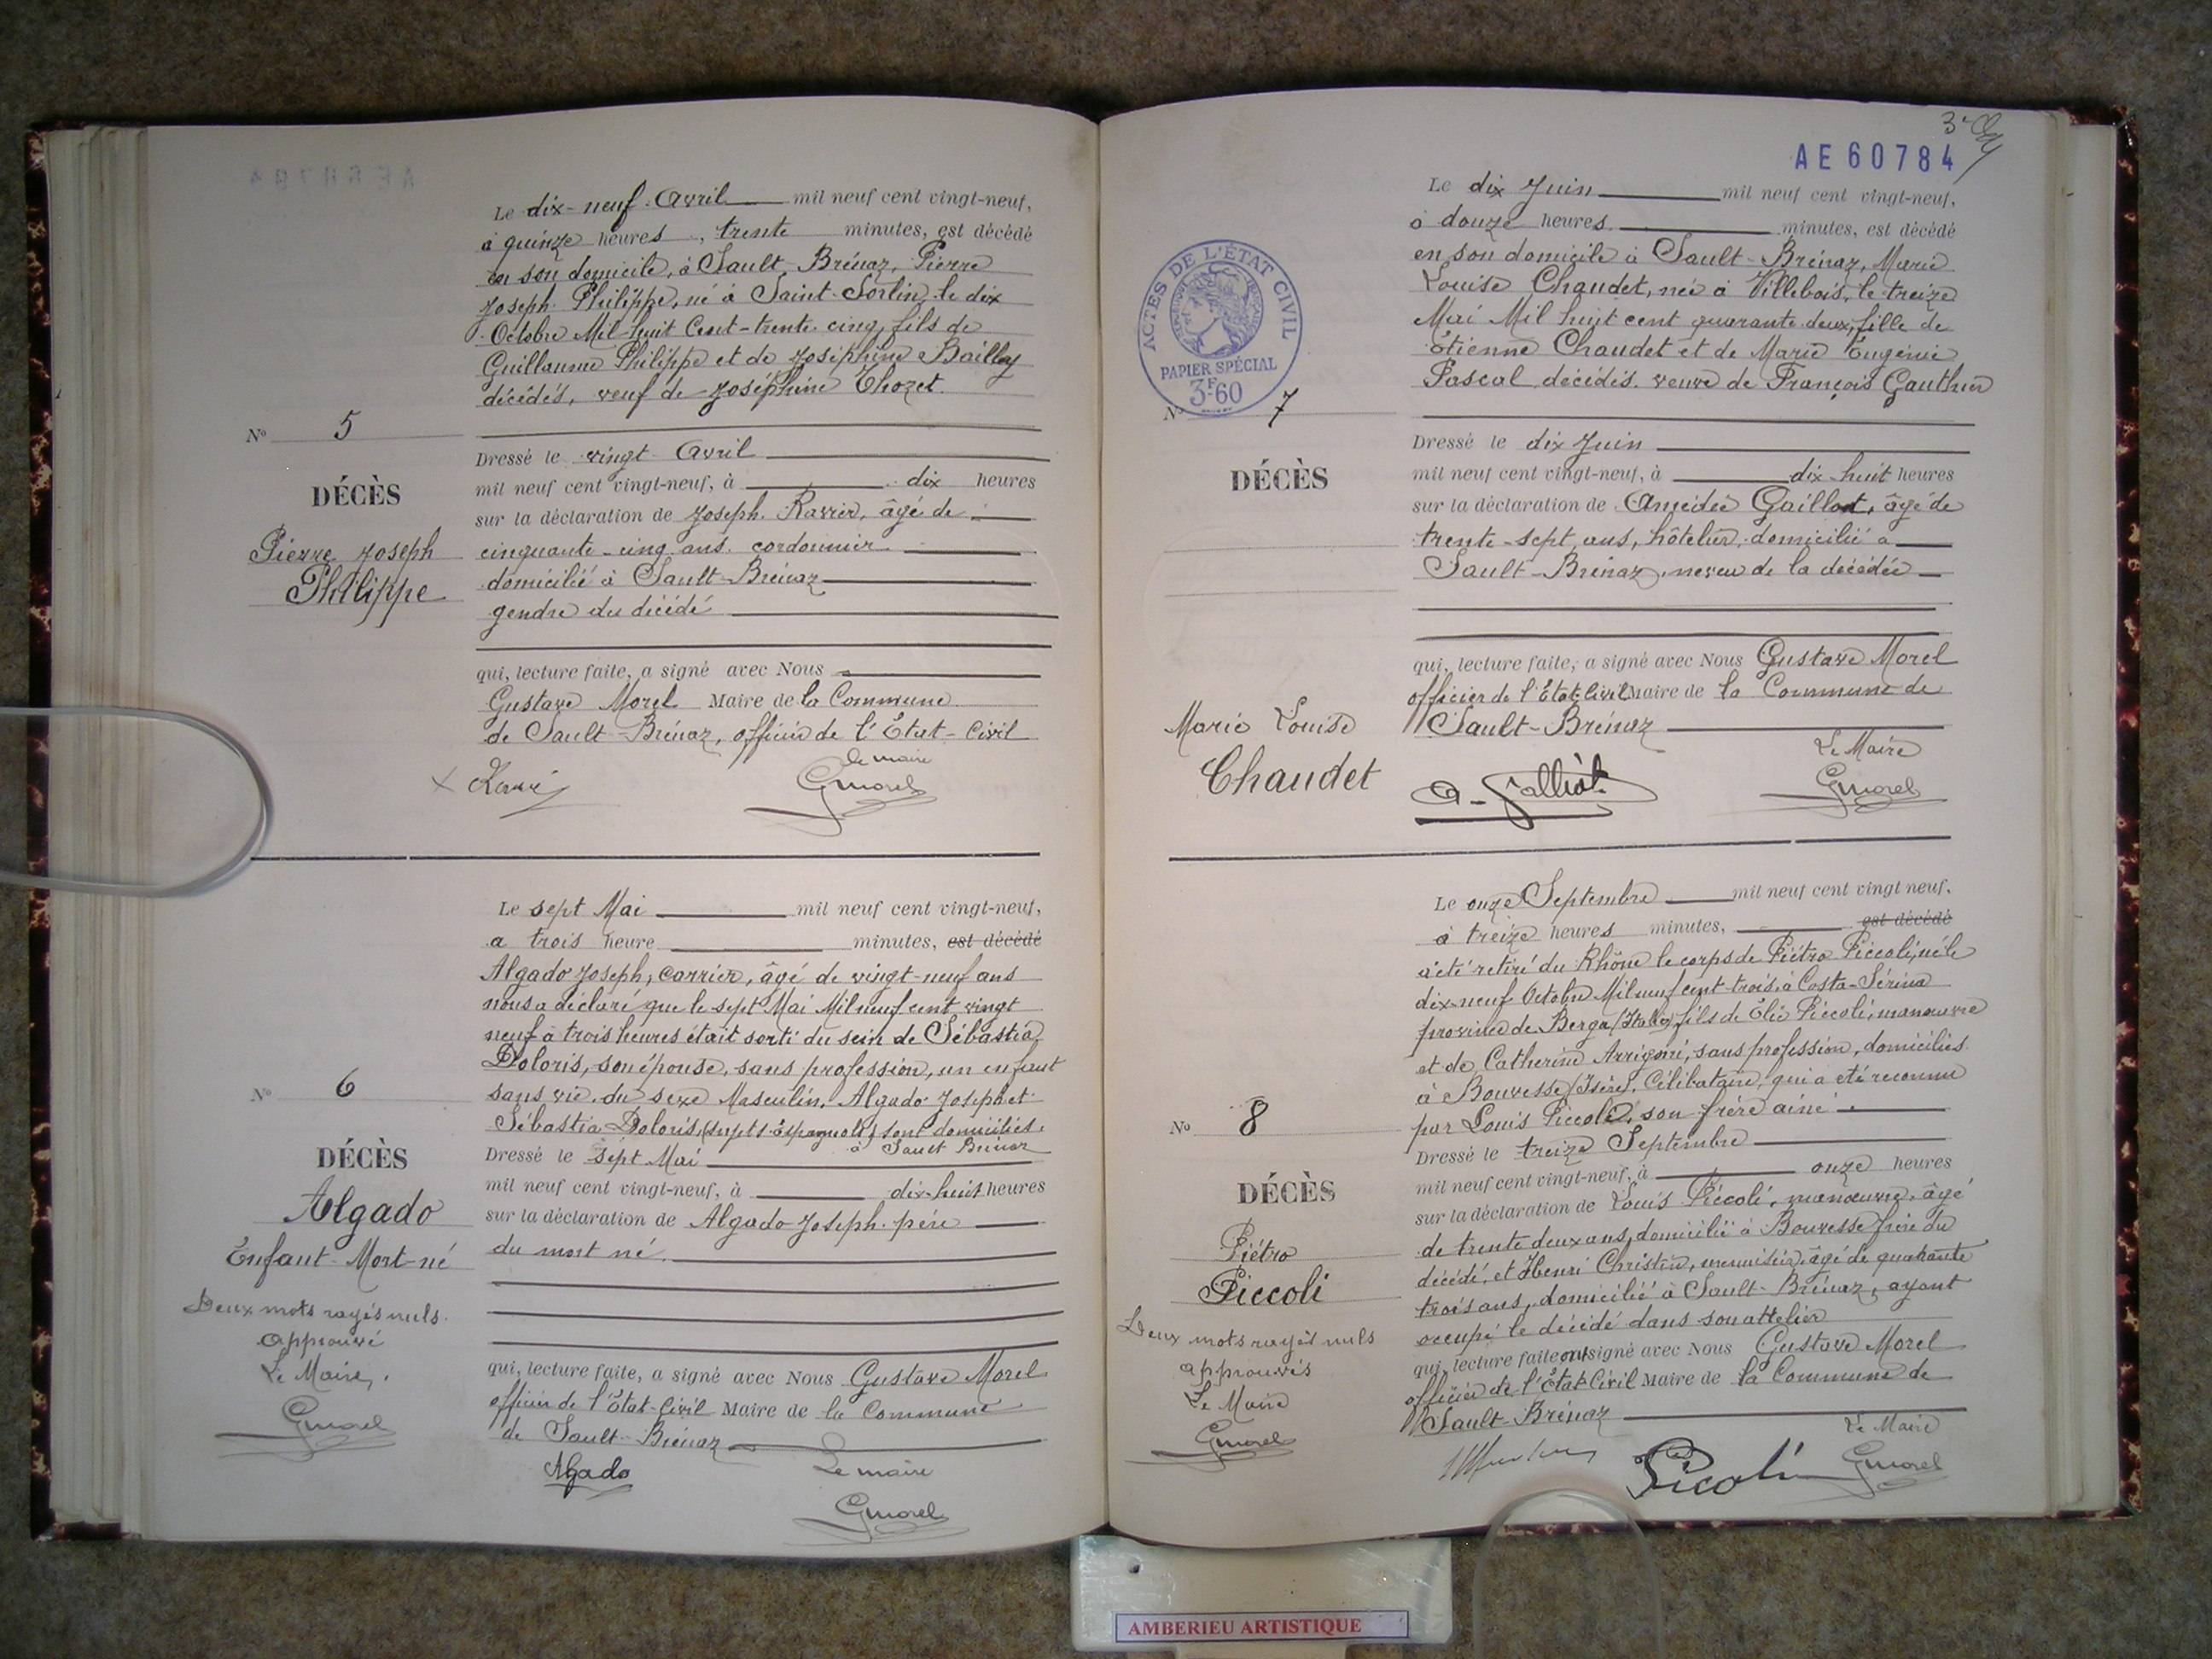 Le dix-neuf Avril mil neuf cent vingt-neuf,
à quinze heures, trente minutes, est décédé
en son domicile, à Sault-Brénaz, Pierre
Joseph Philippe, né à Saint-Sorlin le dix
Octobre Mil-huit Cent-trente-cinq, fils de
Guillaume Philippe et de Joséphine Bailly
décédés, veuf de Joséphine Thozet.
N° 5
DÉCÈS
Pierre Joseph
Philippe
Dressé le vingt Avril
mil neuf cent vingt-neuf, à dix heures
sur la déclaration de Joseph Ravier, âgé de
cinquante-cinq ans, cordonnier
domicilié à Sault-Brénaz
gendre du décédé
qui, lecture faite, a signé avec Nous
Gustave Morel Maire de la Commune
de Sault-Brénaz, officier de l'État-Civil
le maire
Gmorel
Le sept Mai mil neuf cent vingt-neuf,
a trois heure minutes, est décédé
Algado Joseph, carrier, âgé de vingt-neuf ans
nous a déclaré que le sept Mai Mil neuf cent vingt
neuf à trois heures était sorti du sein de Sébastia
Doloris, son épouse, sans profession, un enfant
sans vie, du sexe Masculin, Algado Joseph et
Sébastia Doloris, (sujets Espagnols) sont domiciliés
à Sault Brénaz
N° 6
DÉCÈS
Algado
Enfant Mort-né
Deux mots rayés nuls
approuvé
Le Maire,
Gmorel
Dressé le sept Mai
mil neuf cent vingt-neuf, à dix-huit heures
sur la déclaration de Algado Joseph père
du mort né
qui, lecture faite, a signé avec Nous Gustave Morel
officier de l'État-Civil Maire de la Commune
de Sault-Brénaz
Algado
Le maire
Gmorel
3e
AE 60784
Le dix Juin mil neuf cent vingt-neuf,
à douze heures minutes, est décédé
en son domicile à Sault-Brénaz, Marie
Louise Chaudet, née à Villebois, le treize
Mai Mil huit cent quarante deux, fille de
Étienne Chaudet et de Marie Eugénie
Pascal, décédés, veuve de François Gauthier
ACTES DE L'ÉTAT CIVIL
PAPIER SPÉCIAL
3F60
N° 7
DÉCÈS
Marie Louise
Chaudet
Dressé le dix Juin
mil neuf cent vingt-neuf, à dix-huit heures
sur la déclaration de Amédée Gaillot, âgé de
trente-sept ans, hôtelier, domicilié à
Sault-Brénaz, neveu de la décédée
qui, lecture faite, a signé avec Nous Gustave Morel
officier de l'État-Civil Maire de la Commune de
Sault-Brénaz
Le Maire
Gmorel
Le onze Septembre mil neuf cent vingt neuf,
à treize heures minutes, est décédé
a été retiré du Rhône le corps de Piétro Piccoli, né le
dix-neuf Octobre Mil neuf cent-trois, à Costa-Sérina
province de Berga (Italie) fils de Élie Piccoli, manœuvre
et de Catherine Arrigoni, sans profession, domiciliés
à Bouvesse (Isère). Célibataire, qui a été reconnu
par Louis Piccoli, son frère ainé.
N° 8
DÉCÈS
Piétro
Piccoli
Deux mots rayés nuls
approuvés
Le Maire
Gmorel
Dressé le treize Septembre
mil neuf cent vingt-neuf, à onze heures
sur la déclaration de Louis Piccoli, manœuvre, âgé
de trente deux ans, domicilié à Bouvesse frère du
décédé, et Henri Christin, menuisier, âgé de quarante
trois ans, domicilié à Sault-Brénaz, ayant
occupé le décédé dans son attelier
qui, lecture faite ont signé avec Nous Gustave Morel
officier de l'État-Civil Maire de la Commune de
Sault-Brénaz
Le Maire
Picoli
Gmorel
AMBERIEU ARTISTIQUE